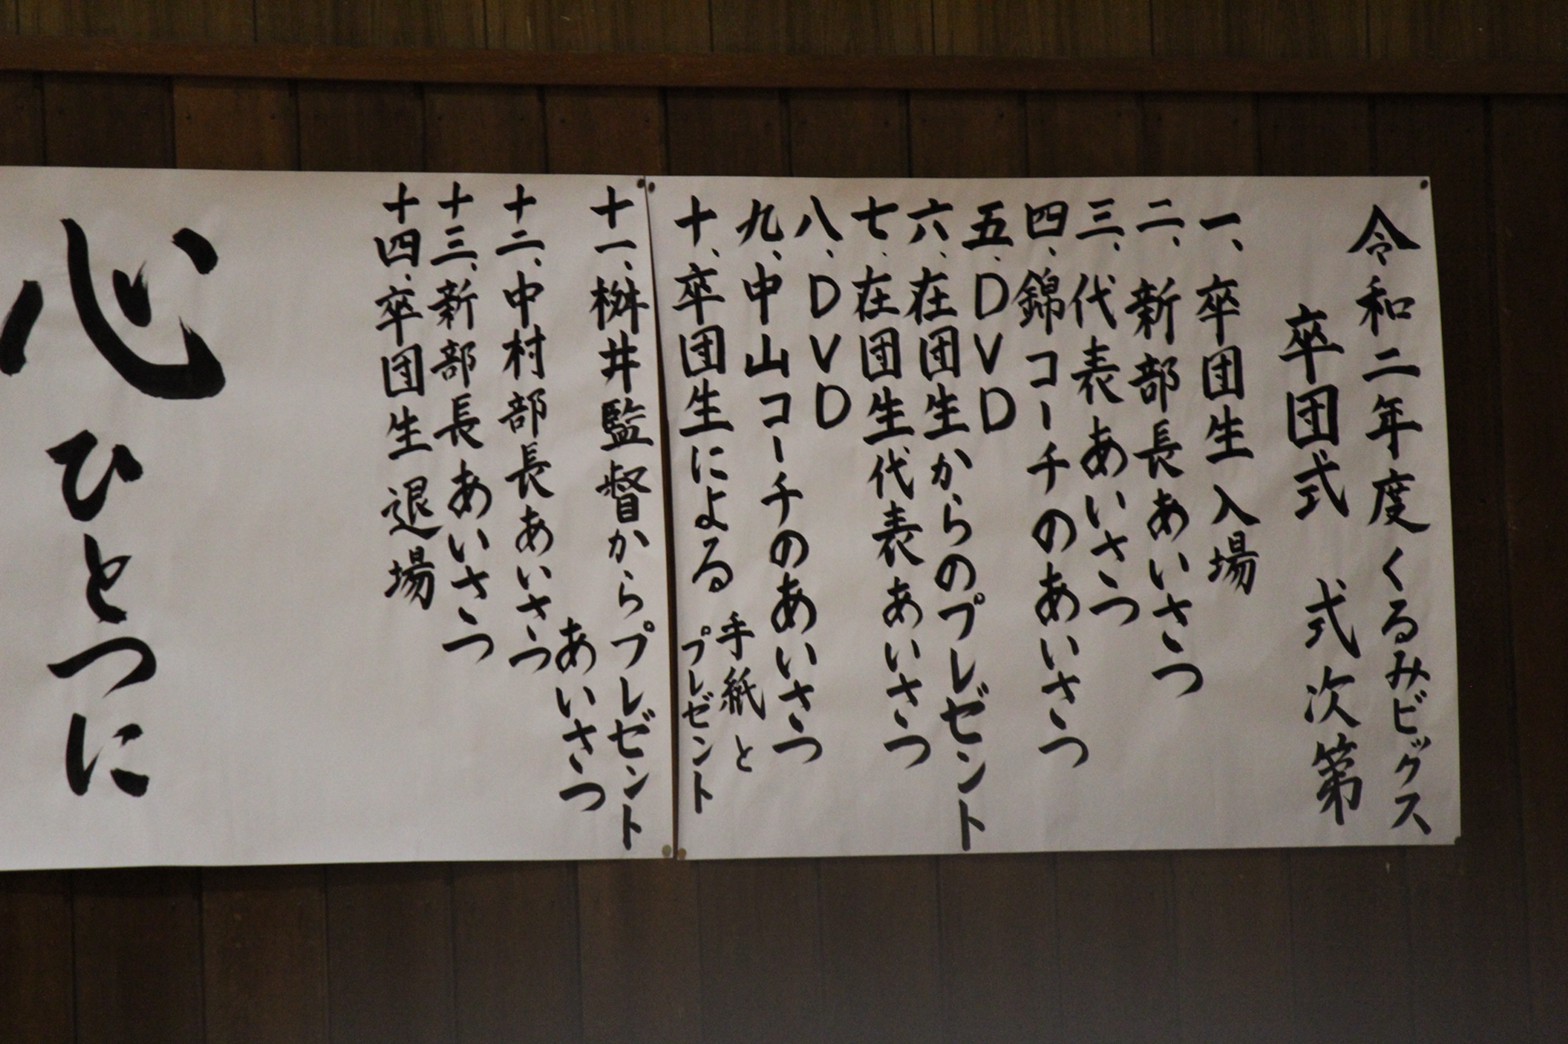 令和二年度くるみビックス
卒団式 式次第
一、卒団生入場
二、新部長あいさつ
三、代表あいさつ
四、錦コーチのあいさつ
五、DVD
六、在団生からのプレゼント
七、在団生代表あいさつ
八、DVD
九、中山コーチのあいさつ
十、卒団生による手紙と
プレゼント
十一、桝井監督からプレゼント
あいさつ
十二、中村部長あいさつ
十三、新部長あいさつ
十四、卒団生退場
心ひとつに